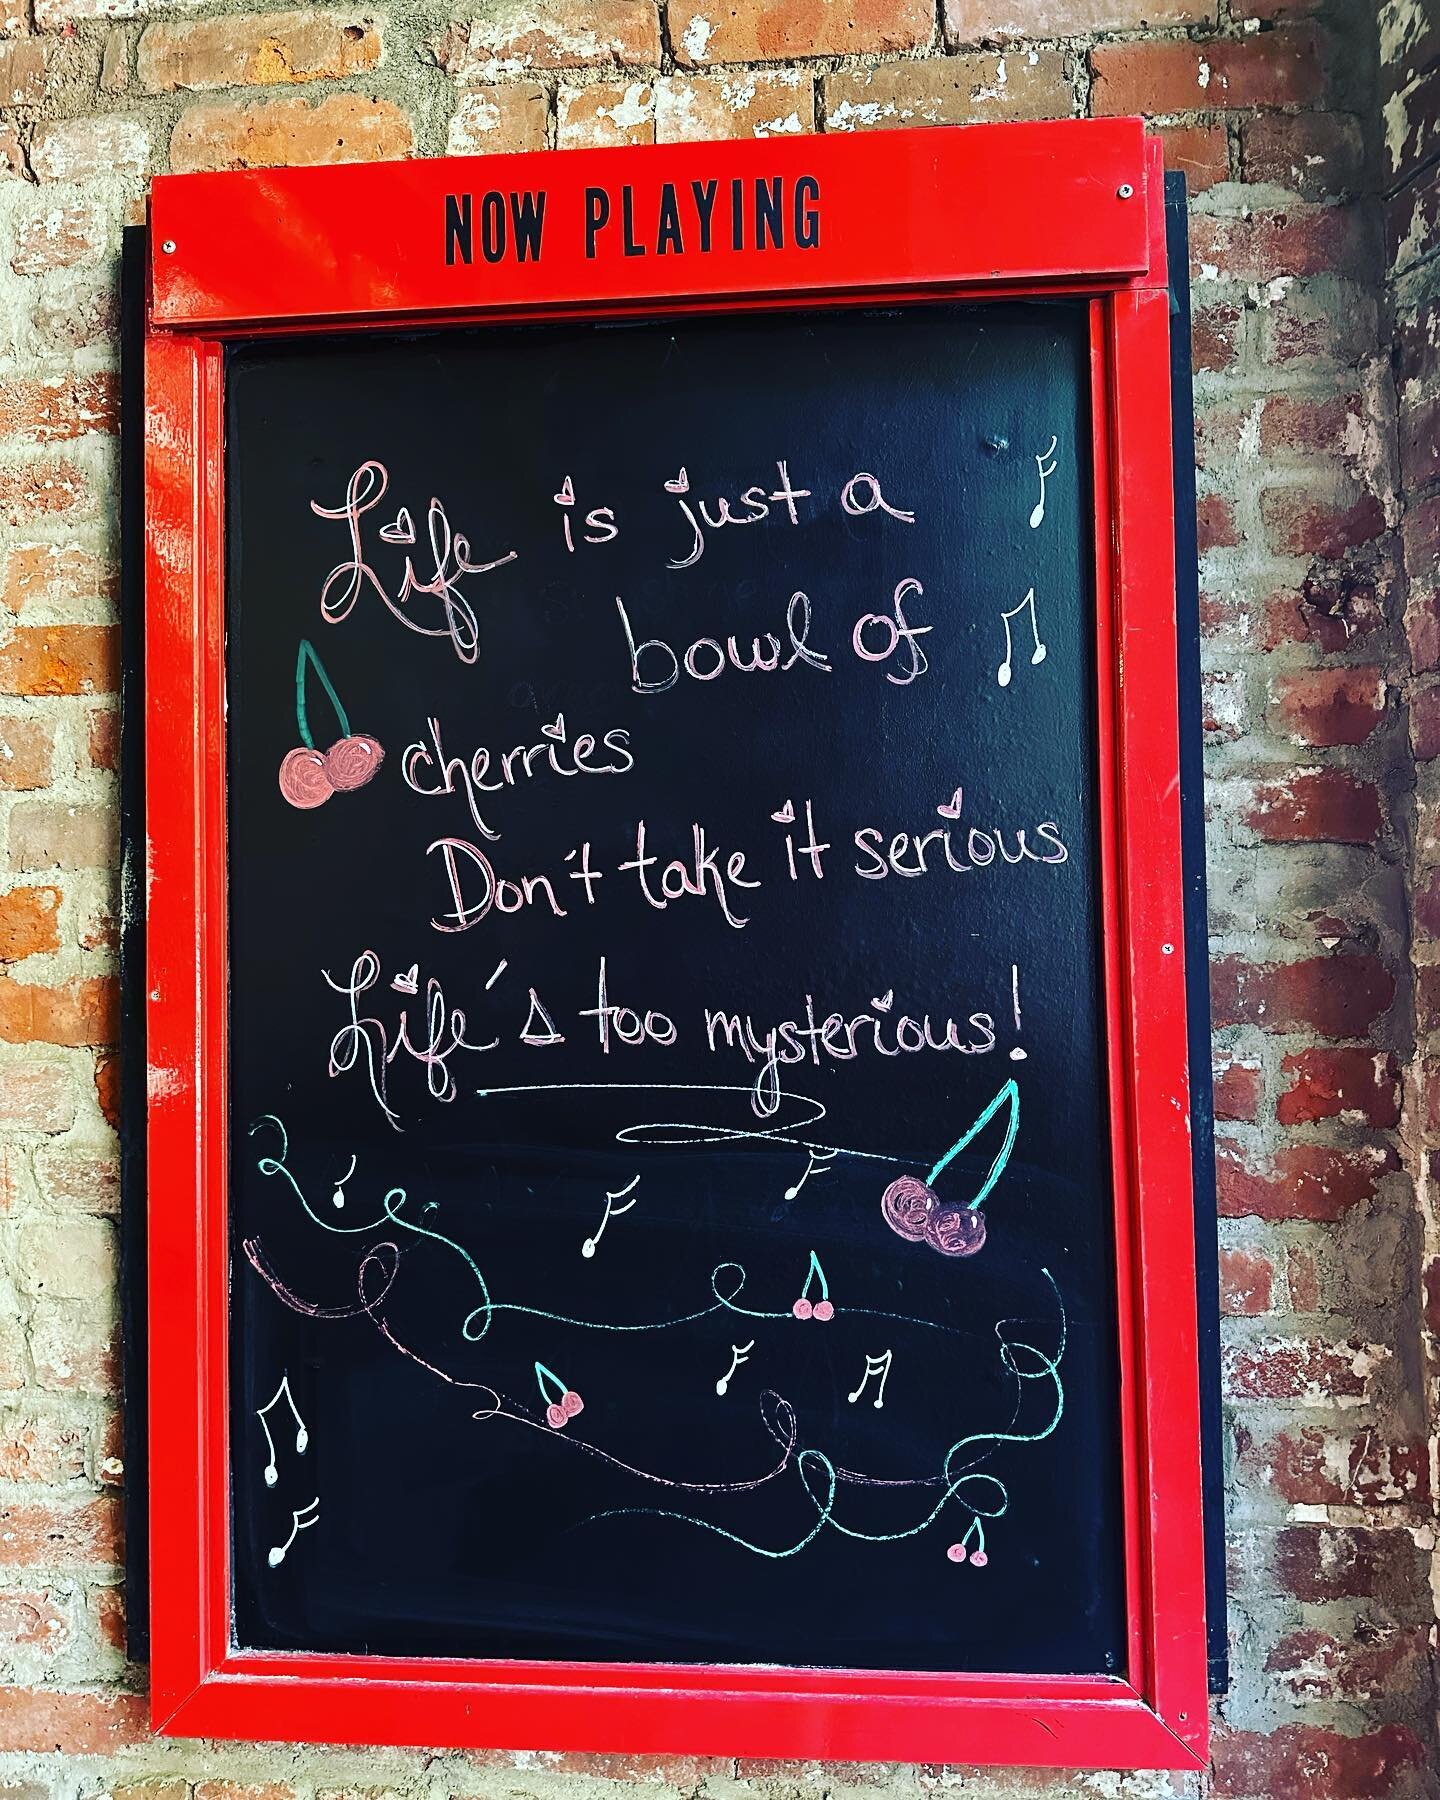 NOW PLAYING
Life is just a
bowl of
cherries
Don't take it serious
Life's too mysterious!